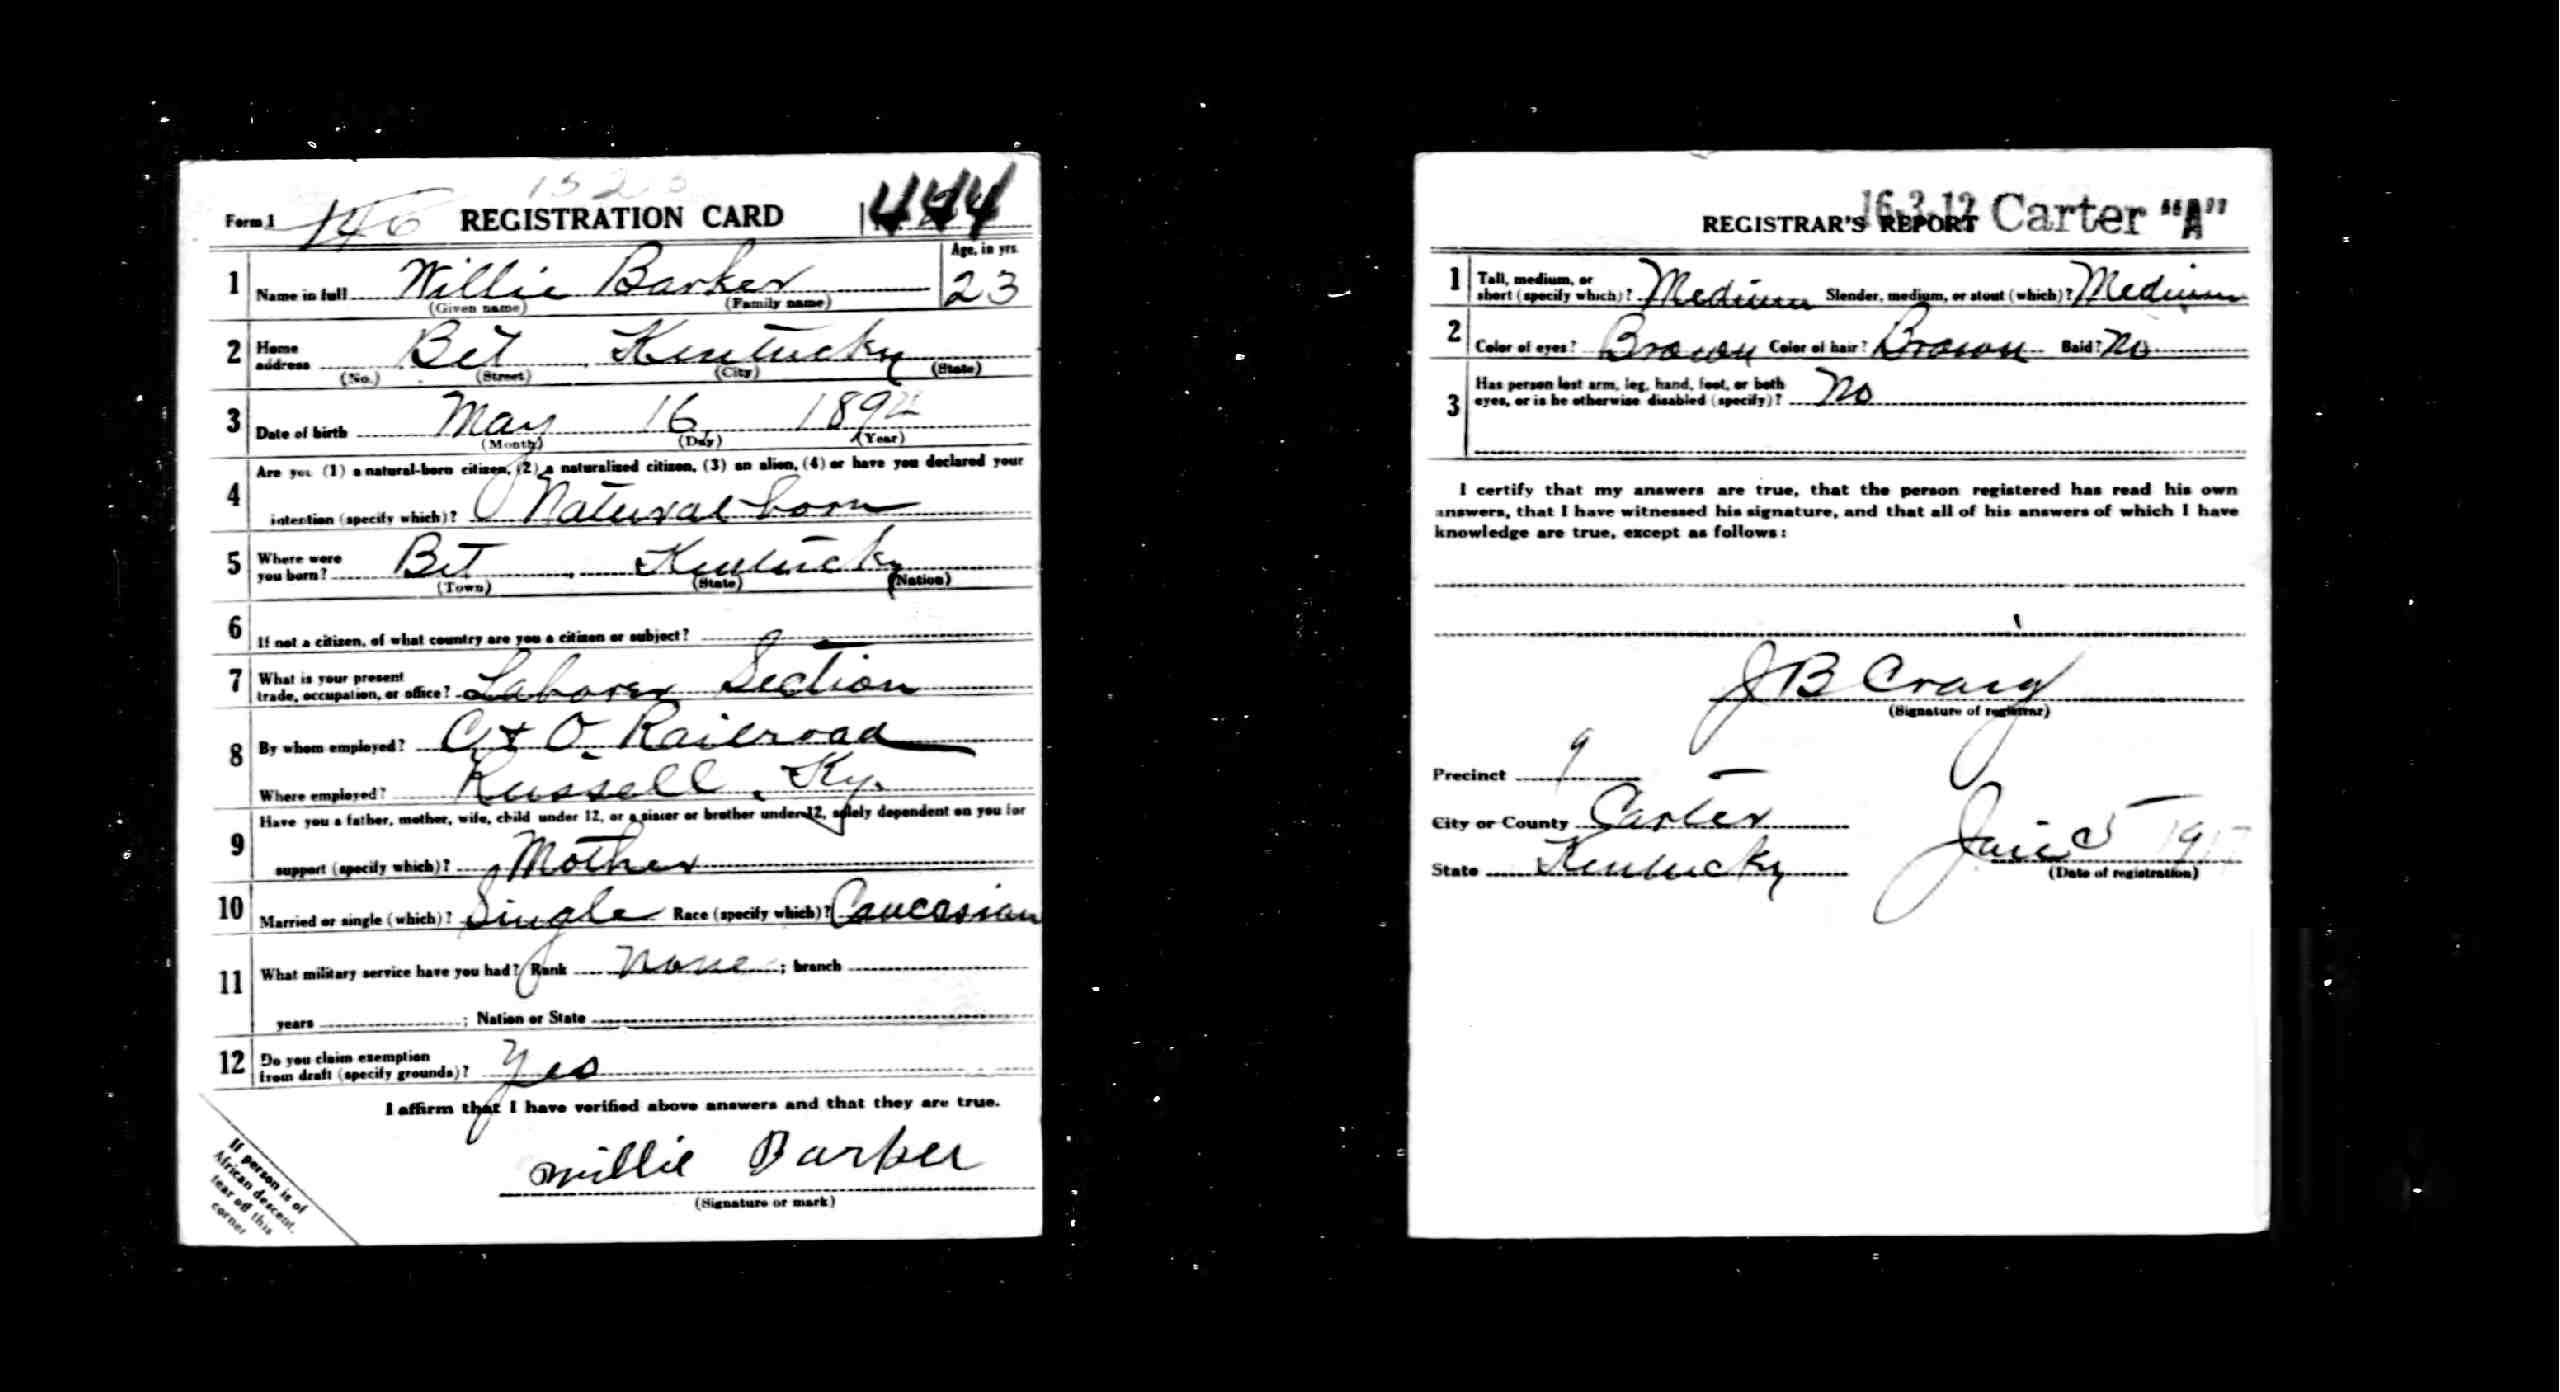 Form 1 146 REGISTRATION CARD 444
1 Name in full Willie Barker Age, in yrs. 23
(Given name) (Family name)
2 Home address Bet Kentucky
(No.) (Street) (City) (State)
3 Date of birth May 16 1894
(Month) (Day) (Year)
4 Are you (1) a natural-born citizen, (2) a naturalized citizen, (3) an alien, (4) or have you declared your
intention (specify which)? Natural born
5 Where were you born? Bet Kentucky
(Town) (State) (Nation)
6 If not a citizen, of what country are you a citizen or subject?
7 What is your present trade, occupation, or office? Laborer Section
8 By whom employed? C & O. Railroad
Where employed? Russell, Ky.
9 Have you a father, mother, wife, child under 12, or a sister or brother under 12, solely dependent on you for
support (specify which)? Mother
10 Married or single (which)? Single Race (specify which)? Caucasian
11 What military service have you had? Rank none ; branch
years ; Nation or State
12 Do you claim exemption from draft (specify grounds)? Yes
I affirm that I have verified above answers and that they are true.
Willie Barker
(Signature or mark)
If person is of
African descent,
tear off this
corner
16-3-12 Carter "A"
REGISTRAR'S REPORT
1 Tall, medium, or short (specify which)? Medium Slender, medium, or stout (which)? Medium
2 Color of eyes? Brown Color of hair? Brown Bald? No
3 Has person lost arm, leg, hand, foot, or both eyes, or is he otherwise disabled (specify)? No
I certify that my answers are true, that the person registered has read his own
answers, that I have witnessed his signature, and that all of his answers of which I have
knowledge are true, except as follows:
J B Craig
(Signature of registrar)
Precinct 9
City or County Carter
State Kentucky
June 5 1917
(Date of registration)